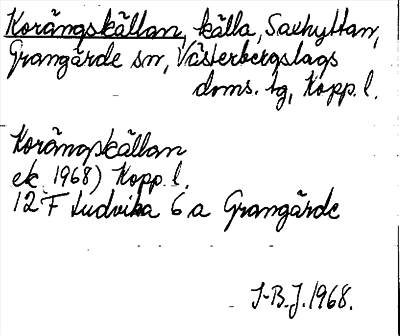 Korängskällan, källa, Saxhyttan,
Grangärde sn, Västerbergslags
doms. tg, Kopp. l.
Korängskällan
ek. 1968) Kopp. l.
12 F Ludvika 6 a Grangärde
I-B.J. 1968.